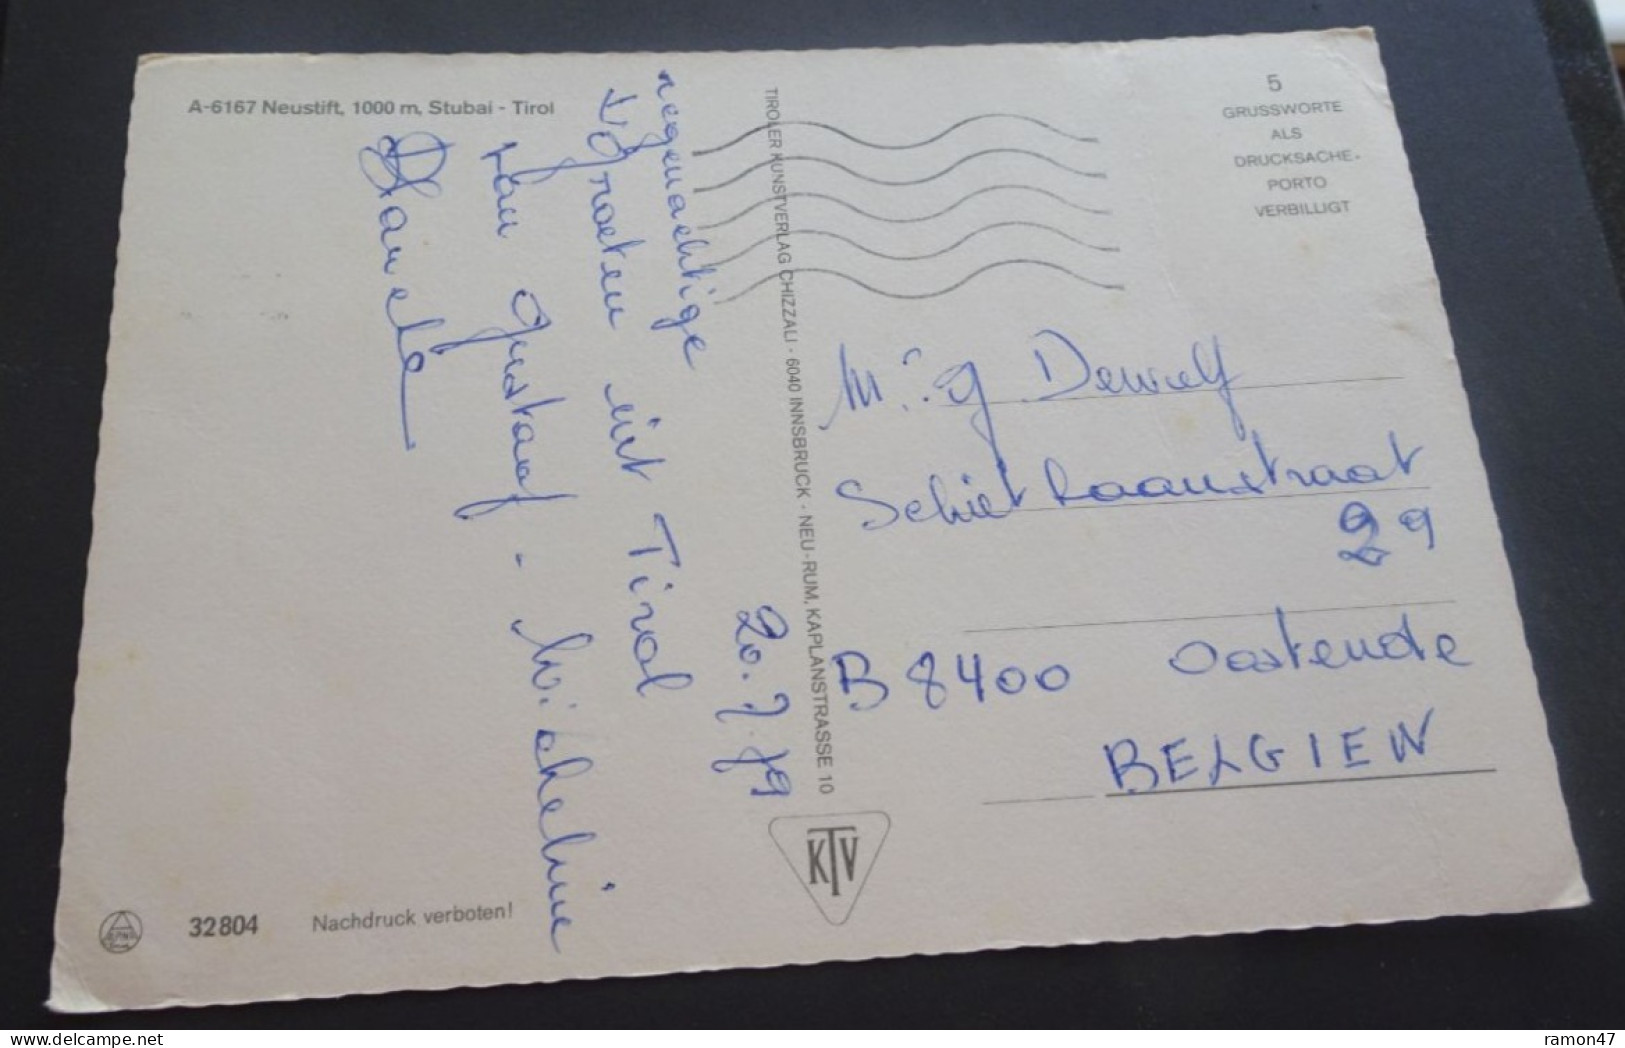 A-6167 Neustift, 1000 m, Stubai - Tirol
5
GRUSSWORTE
ALS
DRUCKSACHE-
PORTO
VERBILLIGT
20.7.79
regenachtige
Groeten uit Tirol
van Gustaaf - Micheline
TIROLER KUNSTVERLAG CHIZZALI · 6040 INNSBRUCK · NEU-RUM, KAPLANSTRASSE 10
Dewulf
Schietbaanstraat
29
B 8400 Oostende
BELGIEN
KTV
32804 Nachdruck verboten!
ramon47